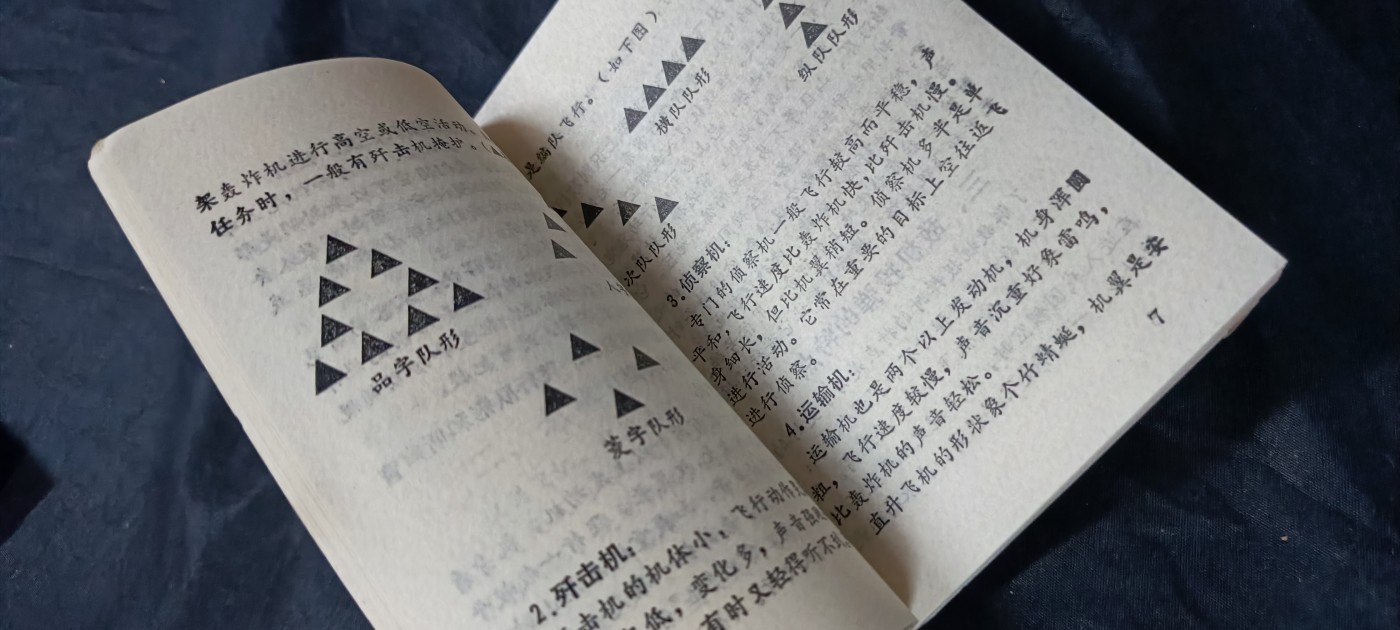 架轰炸机进行高空或低空活动
任务时，一般有歼击机掩护。
品字队形
菱字队形
2.歼击机：
击机的机体小，飞行动作
低，变化多，声音强
有时又轻得听不
是编队飞行。（如下图）
横队队形
纵队队形
次队队形
3.侦察机：
专门的侦察机一般飞行较高而平稳，声
平和，飞行速度比轰炸机快，比歼击机慢。
身细长，但比机翼稍短。侦察机多半是单
进行活动。它常在重要的目标上空往返飞
进行侦察。
4.运输机：
运输机也是两个以上发动机，机身浑圆
粗，飞行速度较慢，声音沉重好象雷鸣，
比轰炸机的声音轻松。
直升飞机的形状象个仃蜻蜓，机翼是安
7